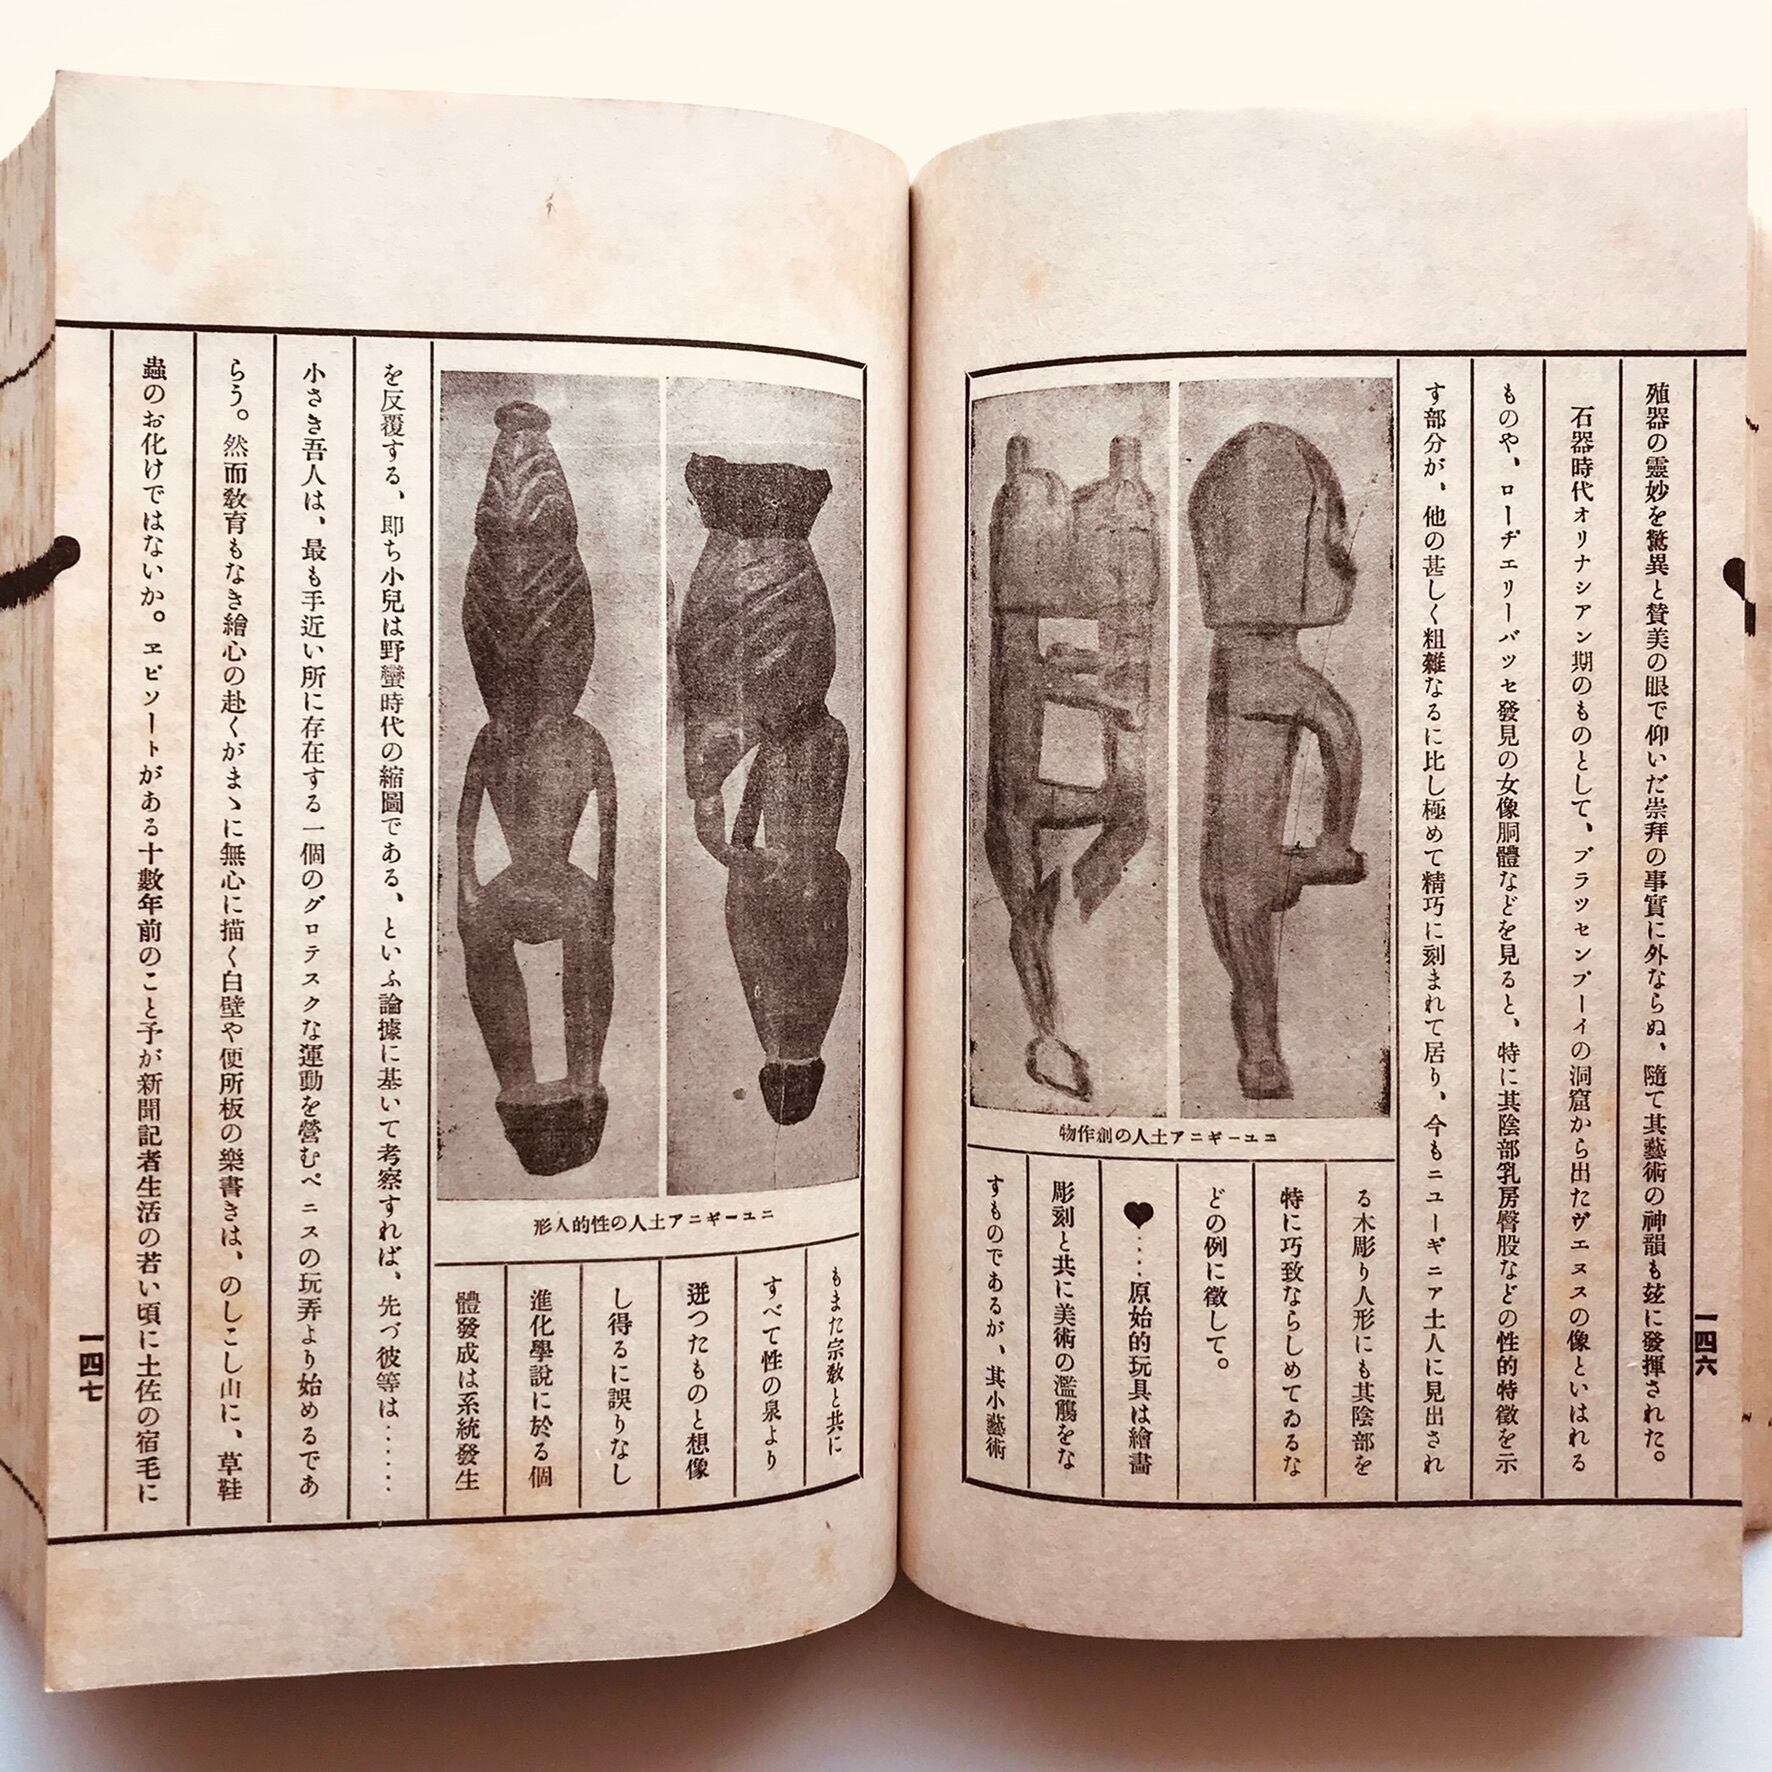 殖器の靈妙を驚異と賛美の眼で仰いだ崇拜の事實に外ならぬ、隨て其藝術の神韻も玆に發揮された。
石器時代オリナシアン期のものとして、ブラツセンプーイの洞窟から出たヴエヌスの像といはれる
ものや、ローヂエリーバツセ發見の女像胴體などを見ると、特に其陰部乳房臀股などの性的特徴を示
す部分が、他の甚しく粗雜なるに比し極めて精巧に刻まれて居り、今もニユーギニア土人に見出され
る木彫り人形にも其陰部を
特に巧致ならしめてゐるな
どの例に徴して。
♥‥‥原始的玩具は繪畵
彫刻と共に美術の濫觴をな
すものであるが、其小藝術
ニユーギニア土人の創作物
一四六
もまた宗敎と共に
すべて性の泉より
迸つたものと想像
し得るに誤りなし
進化學說に於る個
體發成は系統發生
ニユーギニア土人の性的人形
を反覆する、卽ち小兒は野蠻時代の縮圖である、といふ論據に基いて考察すれば、先づ彼等は‥‥‥
小さき吾人は、最も手近い所に存在する一個のグロテスクな運動を營むペニスの玩弄より始めるであ
らう。然而敎育もなき繪心の赴くがまゝに無心に描く白壁や便所板の樂書きは、のしこし山に、草鞋
蟲のお化けではないか。ヱピソートがある十數年前のこと予が新聞記者生活の若い頃に土佐の宿毛に
一四七